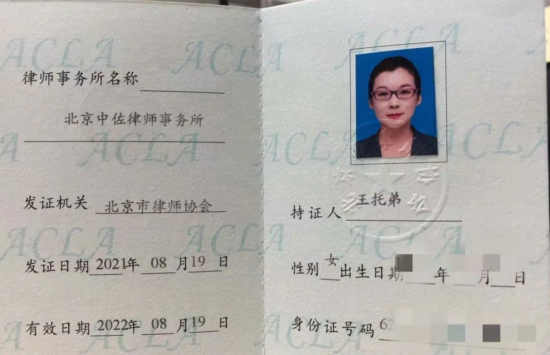 ACLA ACLA
律师事务所名称
北京中佐律师事务所
ACLA
发证机关 北京市律师协会
ACLA
发证日期 2021年 08月19日
有效日期 2022年 08月19日
ACLA
持证人 王托弟
性别 女 出生日期 年 月 日
身份证号码 62